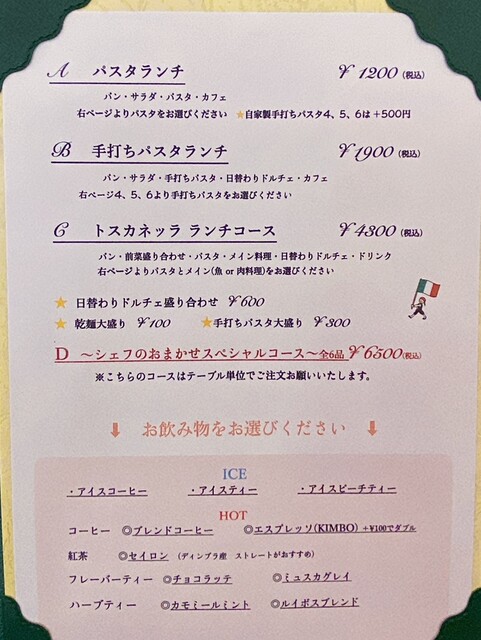 A パスタランチ ¥1200(税込)
パン・サラダ・パスタ・カフェ
右ページよりパスタをお選びください ★自家製手打ちパスタ4、5、6は+500円
B 手打ちパスタランチ ¥1900(税込)
パン・サラダ・手打ちパスタ・日替わりドルチェ・カフェ
右ページ4、5、6より手打ちパスタをお選びください
C トスカネッラ ランチコース ¥4300(税込)
パン・前菜盛り合わせ・パスタ・メイン料理・日替わりドルチェ・ドリンク
右ページよりパスタとメイン(魚 or 肉料理)をお選びください
★ 日替わりドルチェ盛り合わせ ¥600
★ 乾麺大盛り ¥100 ★手打ちパスタ大盛り ¥300
D ～シェフのおまかせスペシャルコース～全6品 ¥6500(税込)
※こちらのコースはテーブル単位でご注文お願いいたします。
⬇ お飲み物をお選びください ⬇
ICE
・アイスコーヒー ・アイスティー ・アイスピーチティー
HOT
コーヒー ◎ブレンドコーヒー ◎エスプレッソ(KIMBO) +¥100でダブル
紅茶 ◎セイロン (ディンブラ産 ストレートがおすすめ)
フレーバーティー ◎チョコラッテ ◎ミュスカグレイ
ハーブティー ◎カモミールミント ◎ルイボスブレンド